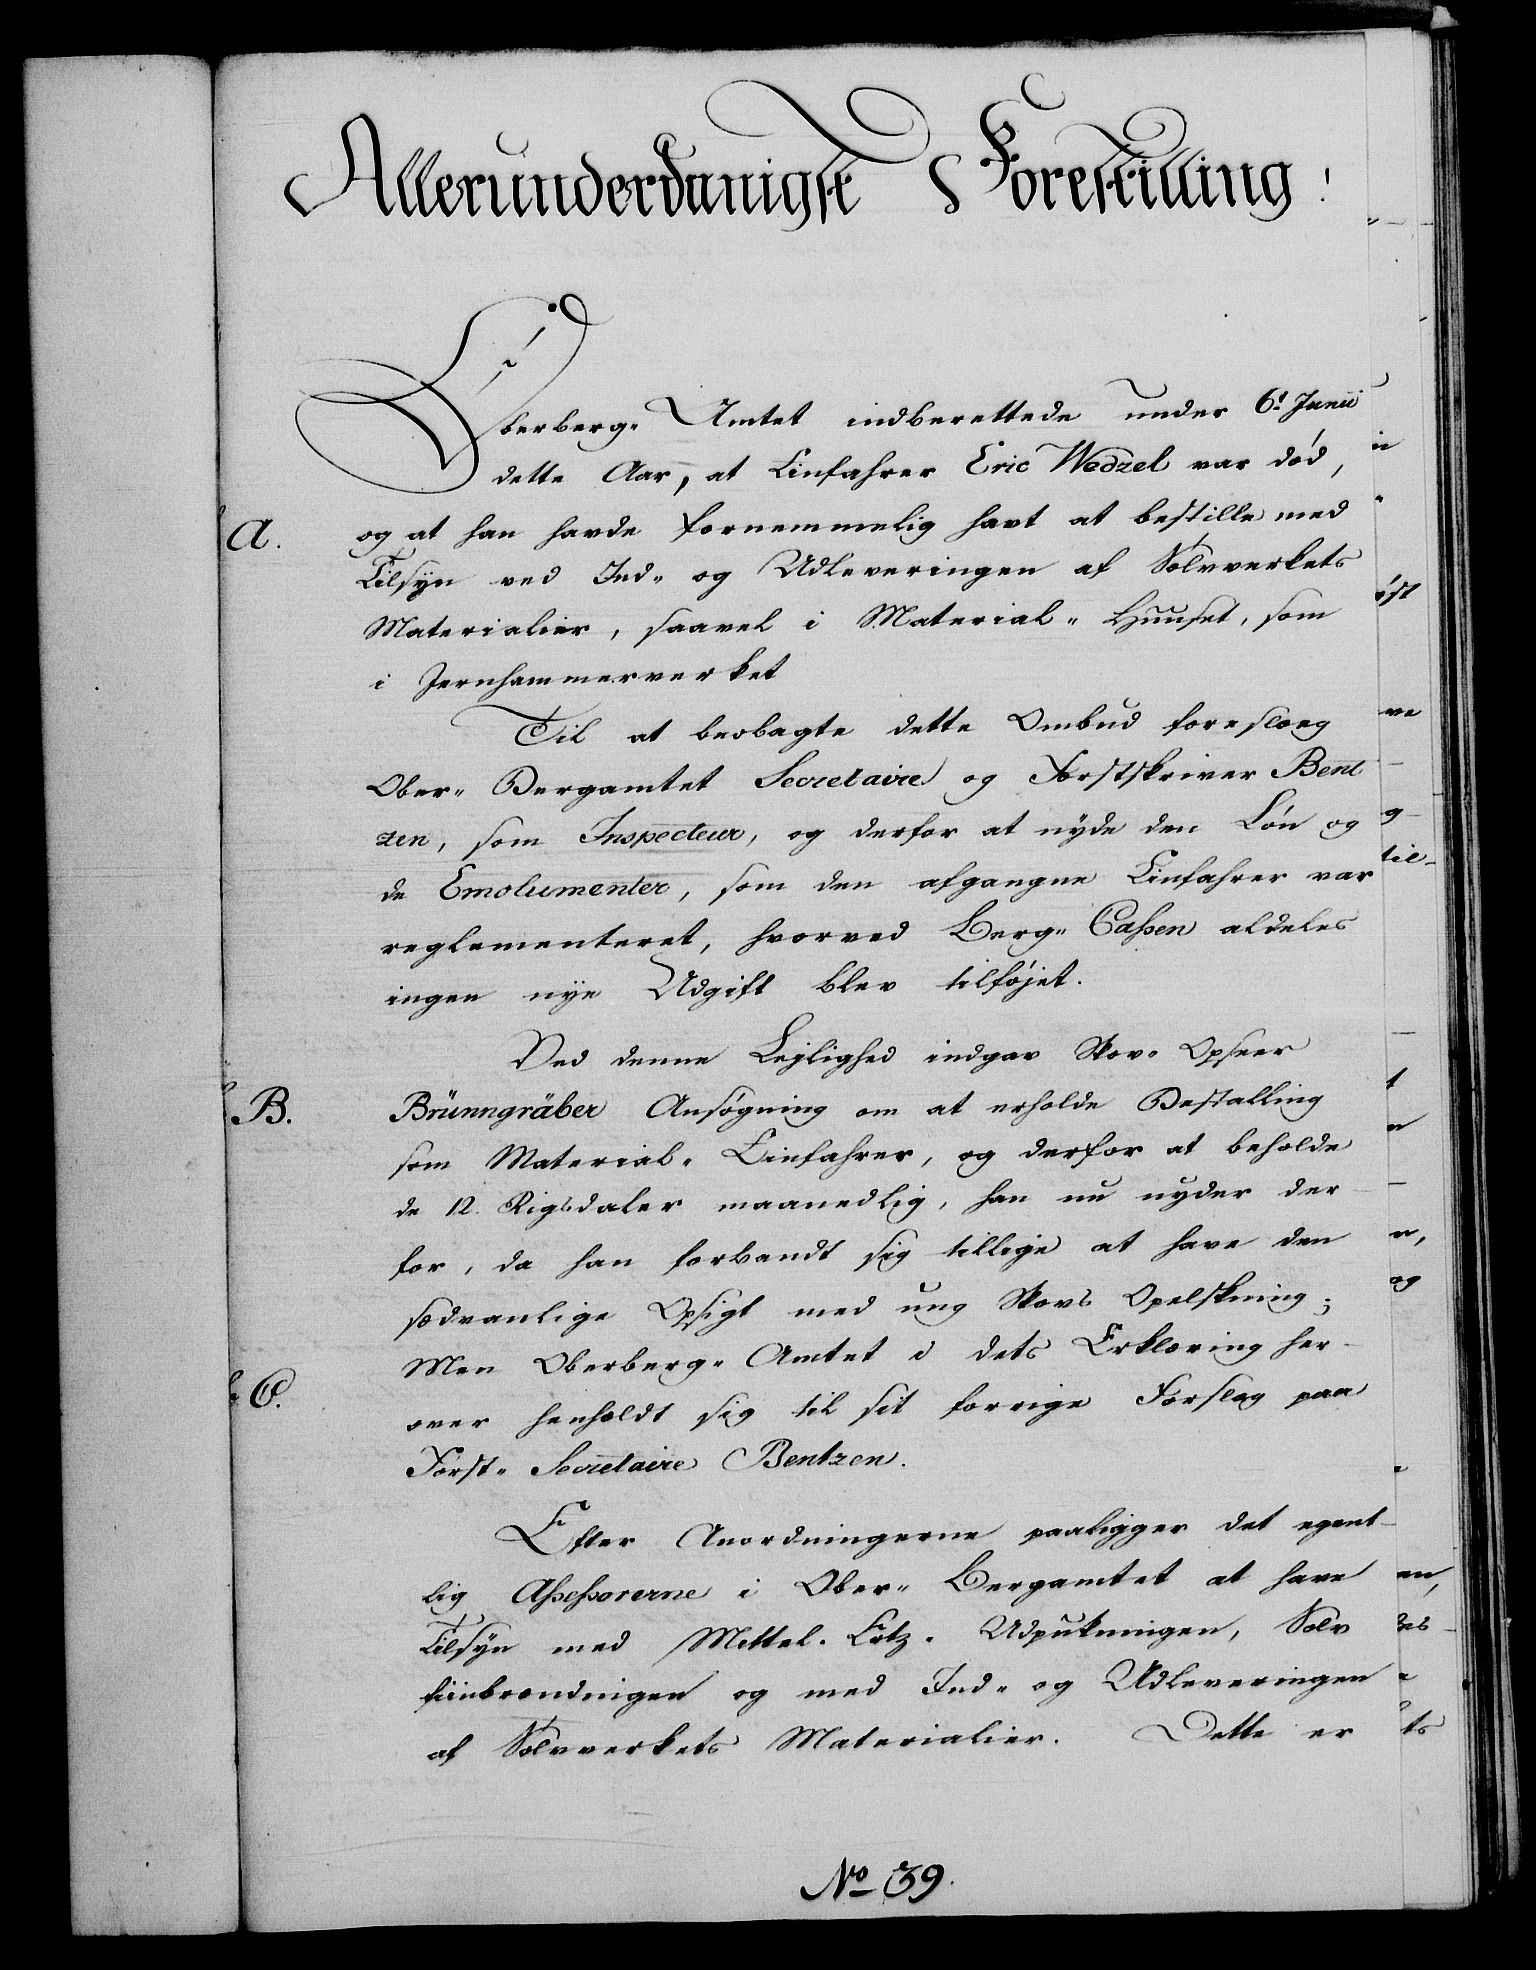 Allerunderdanigst Forestilling!
Oberberg- Amtet indberettede under 6t Junii
dette Aar, at Einfahrer Eric Wedzel var død,
A.
og at han havde fornemmelig havt at bestille med
Tilsÿn ved Ind- og Udleveringen af Sølvverkets
Materialier, saavel i Material- Huuset, som
i Jernhammerverket
Til at beobagte dette Ombud foreslog
Ober- Bergamtet Secretaire og Forstskriver Bent
zen, som Inspecteur, og derfor at nyde den Løn og
de Emolumenter, som den afgangne Einfahrer var
reglementeret, hvorved Berg- Cassen aldeles
ingen nye Udgift blev tilføjet.
Ved denne Lejlighed indgav Skov- Opseer
B.
Brünngräber Ansøgning om at erholde Bestalling
som Material- Einfahrer, og derfor at beholde
de 12. Rigsdaler maanedlig, han nu nyder der
for, da han forbandt sig tillige at have den
sædvanlige Opsigt med ung Skovs Opelskning;
Men Oberberg- Amtet i dets Erklæring her-
C.
over henholdt sig til sit forrige Forslag paa
Forst- Secretaire Bentzen.
Efter Anordningerne paaligger det egent-
lig Assessorerne i Ober- Bergamtet at have
Tilsÿn med Mittel- Ertz- Udpukningen, Sølv
fiinbrændingen og med Ind- og Udleveringen
af Sølvverkets Materialier. Dette er
No 39.